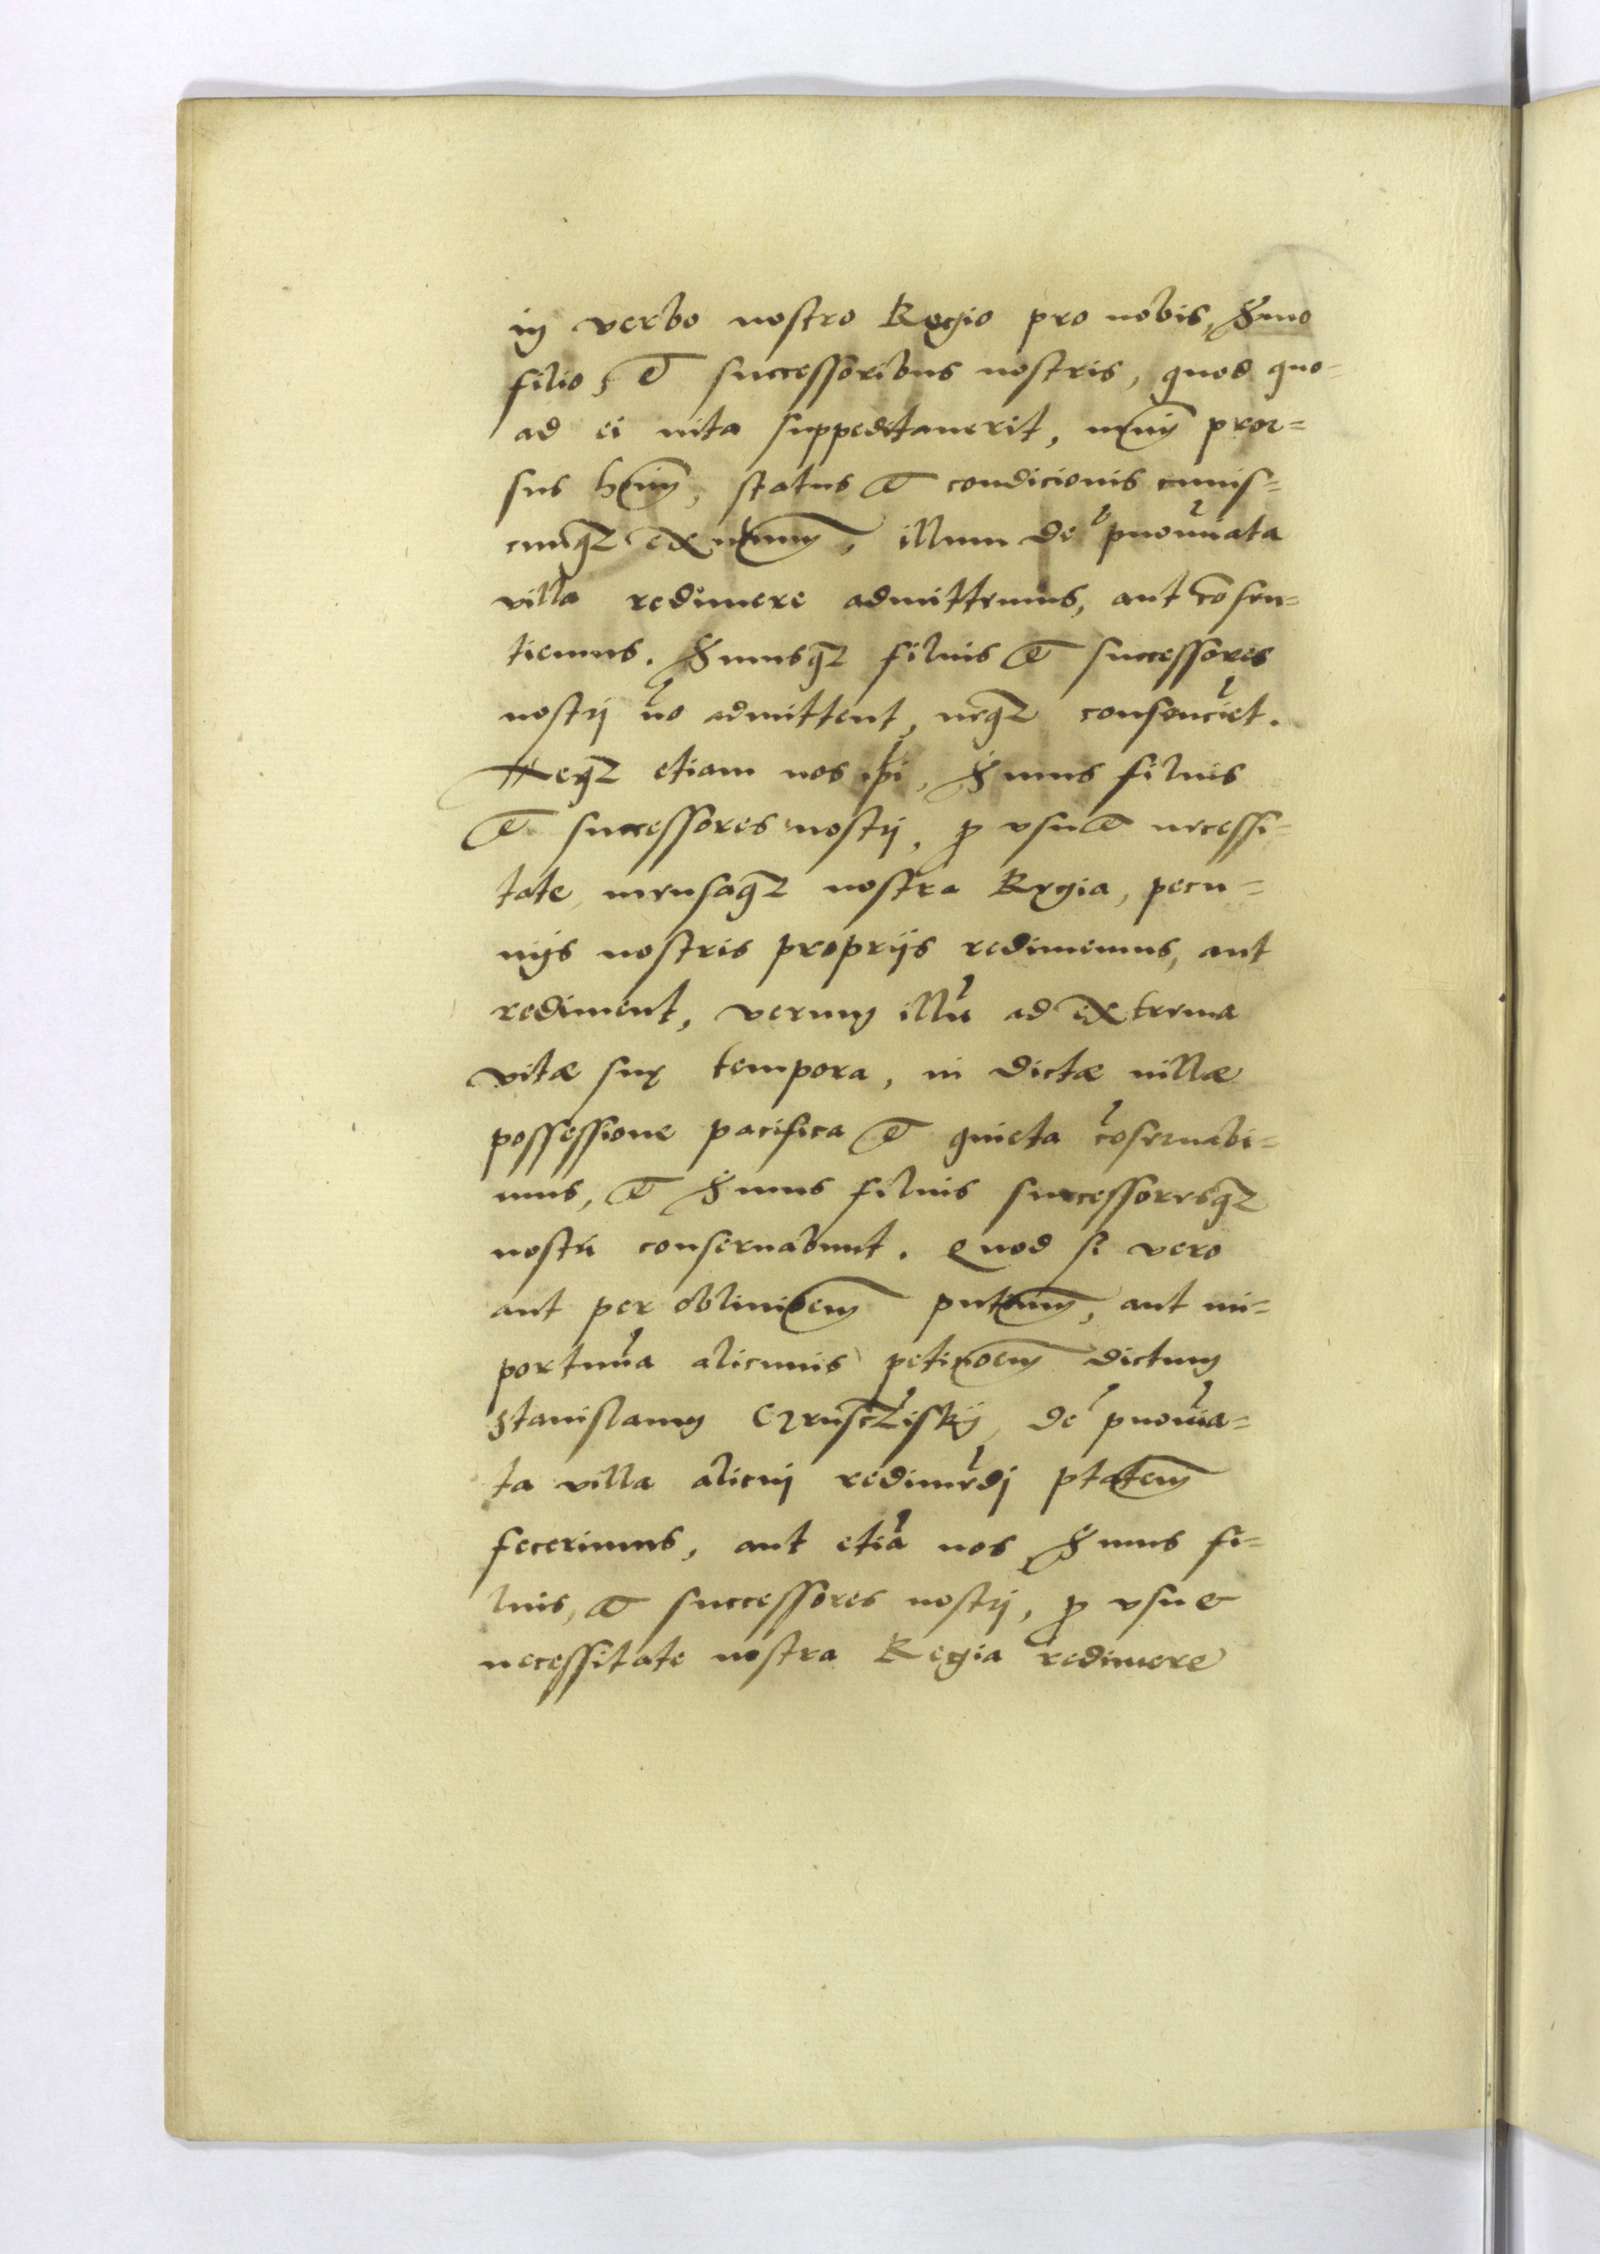 in verbo nostro Regio pro nobis, Smo
filio, et successoribus nostris, quod quo-
ad ei uita suppeditauerit, nemini pror-
sus hoīm, status et condicionis cuius-
cunq3 existentium, illum de pnoīata
villa redimere admittemus, aut cōsen-
tiemus. Smusq3 filius et successores
nostrj nō admittent, neq3 consenciēt.
Neq3 etiam nos ipi, Smus filius
et successores nostrj, p vsu et necessi-
tate, mensaq3 nostra Regia, pecu-
nijs nostris proprijs redimemus, aut
rediment, verum illū ad extrema
vitæ suę tempora, in dictæ uillæ
possessione pacifica et quieta cōseruabi-
mus, et Smus filius successoresq3
nostri conseruabunt. Quod si vero
aut per obliuioem pntium, aut im-
portunā alicuius petitioem dictum
Stanislaum Czrusczlisky, de pnoīa-
ta villa alicuj redimēdj ptatem
fecerimus, aut etiā nos Smus fi-
lius, et successores nostrj, p vsu et
necessitate nostra Regia redimere